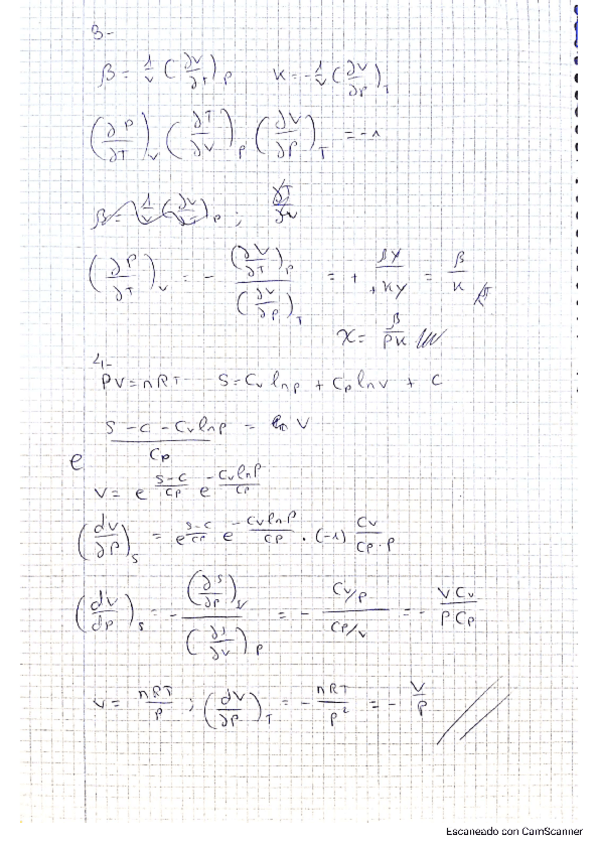 3-
β = 1/v (∂V/∂T)_P   K = -1/v (∂V/∂P)_T
(∂P/∂T)_V (∂T/∂V)_P (∂V/∂P)_T = -1
β = 1/v (∂V/∂T)_P ; ∂T/∂V
(∂P/∂T)_V = - (∂V/∂T)_P / (∂V/∂P)_T = + βV/+KV = β/K
χ = β/PK
4-
PV = nRT   S = Cv lnp + Cp lnv + C
(S - C - Cv lnp)/Cp = ln V
e
V = e^((S-C)/Cp) e^(-Cv lnP/Cp)
(dV/∂P)_S = e^((S-C)/Cp) e^(-Cv lnP/Cp) · (-1) Cv/(Cp·P)
(dV/dP)_S = - (∂S/∂P)_V / (∂S/∂V)_P = - (Cv/P)/(Cp/V) = - V Cv/P Cp
V = nRT/P ; (dV/∂P)_T = - nRT/P² = - V/P
Escaneado con CamScanner